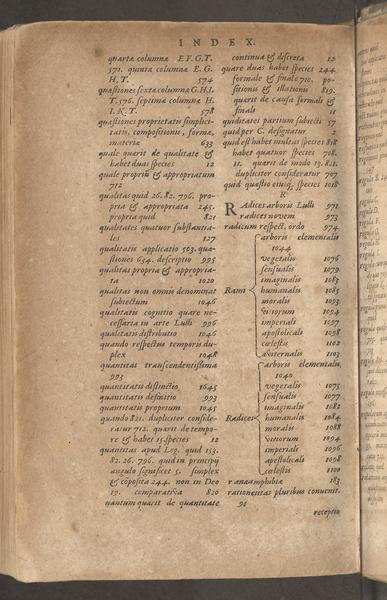 INDEX.
quarta columna E F. G. T.
571. quinta columna E. G.
H. T. 574
quæstiones sexta columna G. H. I.
T. 576. septima columna H.
I. K. T. 578
quæstiones proprietatis simplici-
tatis, compositionis, formæ,
materiæ 633
quale quærit de qualitate &
habet duas species 12
quale propriũ & appropriatum
712
qualitas quid 26. 82. 796. pro-
pria & appropriata 245.
propria quid 821
qualitates quatuor substantia-
les 127
qualitatis applicatio 503. quæ-
stiones 634. descriptio 995
qualitas propria & appropria-
ta 1020
qualitas non omnis denominat
subiectum 1046
qualitatis cognitio quare ne-
cessaria in arte Lulli 996
qualitatis distributio 1046
quando respectus temporis du-
plex 1048
quantitas transcendentissima
993
quantitatis distinctio 1645
quantitatis definitio 993
quantitatis proprium 1045
quando 821. dupliciter conside-
ratur 712. quærit de tempo-
re & habet 15. species 12
quantitas apud Log. quid 153.
82. 26. 796. quid in principij
angulo significet 5. simplex
& cõposita 244. non in Deo
19. comparativa 820
quantum quærit de quantitate
continua & discreta 12
quare duas habet species 244.
formale & finale 710. po-
sitionis & illationis 819.
quærit de causa formali &
finali 11
quiditates partium subiecti 57
quid per C. designatur 2
quid est habet multas species 818
habet quatuor species 708.
11. quærit de modo 19. L. 1.
dupliciter consideratur 707
quid quæstio eiusq; species 1018
R
Radices arboris Lulli 971
radices novem 973
radicum respect. ordo 974
arboris elementalis
1044
vegetalis 1076
sensualis 1079
imaginalis 1083
Rami humanalis 1085
moralis 1093
viriorum 1094
imperialis 1097
apostolicalis 1098
cœlestis 1102
æviternalis 1103
arboris elementalis
1040
vegetalis 1075
sensualis 1077
imaginalis 1082
Radices humanalis 1084
moralis 1088
vitiorum 1094
imperialis 1096
apostolicalis 1098
cœlestis 1100
rana amphibia 183
rationeitas pluribus convenit.
91
receptio